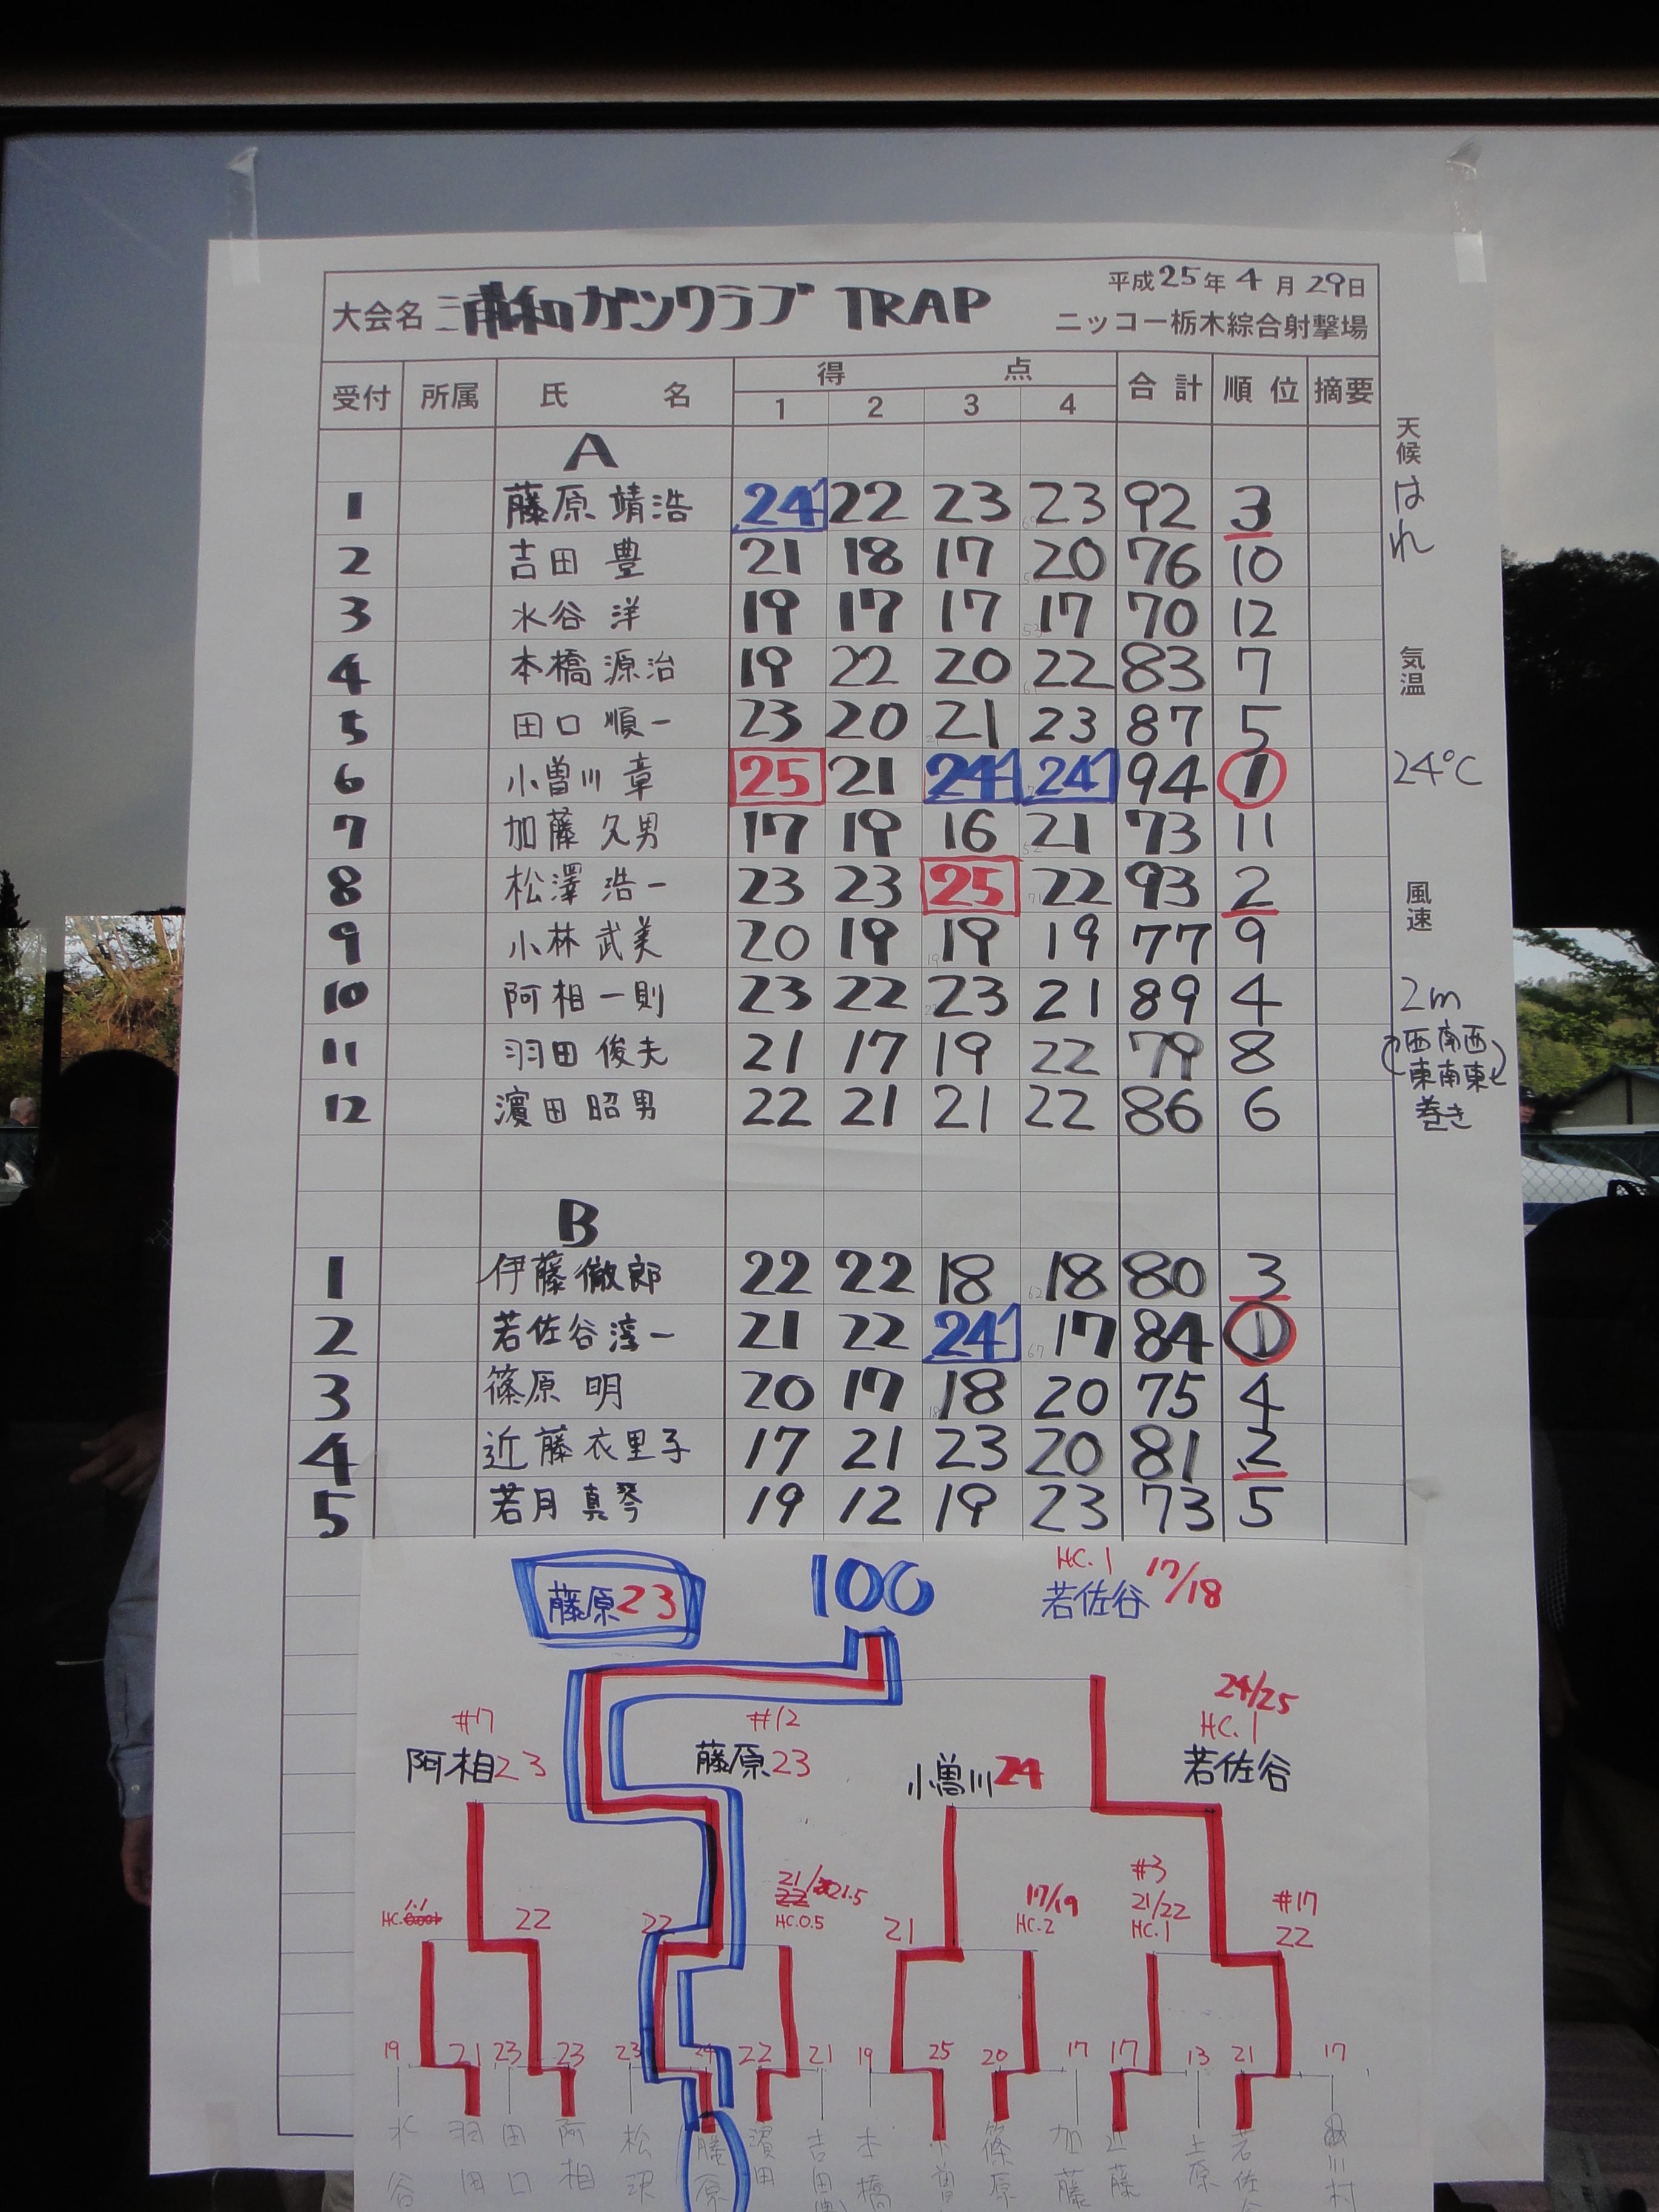 平成25年4月29日
大会名 三浦和ガンクラブ TRAP
ニッコー栃木綜合射撃場
受付 所属 氏名 得点 合計 順位 摘要
1 2 3 4
A
1 藤原 靖浩 24 22 23 23 92 3
2 吉田 豊 21 18 17 20 76 10
3 水谷 洋 19 17 17 17 70 12
4 本橋 源治 19 22 20 22 83 7
5 田口 順一 23 20 21 23 87 5
6 小曽川 章 25 21 24 24 94 1
7 加藤 久男 17 19 16 21 73 11
8 松澤 浩一 23 23 25 22 93 2
9 小林 武美 20 19 19 19 77 9
10 阿相 一則 23 22 23 21 89 4
11 羽田 俊夫 21 17 19 22 79 8
12 濱田 昭男 22 21 21 22 86 6
B
1 伊藤 徹郎 22 22 18 18 80 3
2 若佐谷 淳一 21 22 24 17 84 1
3 篠原 明 20 17 18 20 75 4
4 近藤 衣里子 17 21 23 20 81 2
5 若月 真琴 19 12 19 23 73 5
天候
はれ
気温
24℃
風速
2m
西南西
東南東
巻き
藤原23 100 HC.1 17/18
若佐谷
#17 #12 24/25
HC.1
阿相23 藤原23 小曽川24 若佐谷
21/21.5 17/19 #3 #17
HC. 22 22 HC.0.5 21 HC.2 21/22 22
HC.1
19 21 23 23 23 24 22 21 19 25 20 17 17 13 21 17
水谷 羽田 田口 阿相 松沢 藤原 濱田 吉田 本橋 篠原 加藤 近藤 上原 若佐 川村